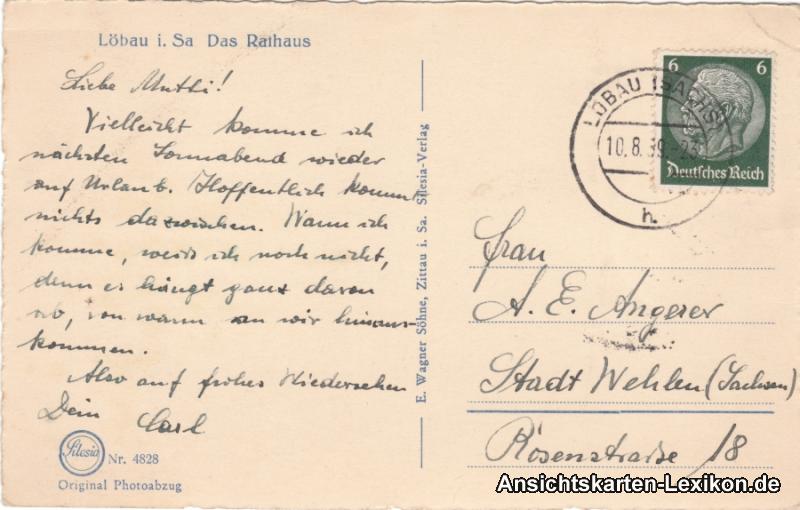 Löbau i. Sa Das Rathaus
Liebe Mutti!
Vielleicht komme ich
nächsten Sonnabend wieder
auf Urlaub. Hoffentlich kommt
nichts dazwischen. Wann ich
komme, weiss ich noch nicht,
denn es hängt ganz davon
ab, von wann an wir hinaus-
kommen.
Also auf frohes Wiedersehen
Dein Carl
Silesia
Nr. 4828
Original Photoabzug
E. Wagner Söhne, Zittau i. Sa. Silesia-Verlag
6 6
Deutsches Reich
LÖBAU (SACHS)
10.8.39.-23
h
Frau
A. E. Angerer
Stadt Wehlen (Sachsen)
Rosenstrasse 18
Ansichtskarten-Lexikon.de